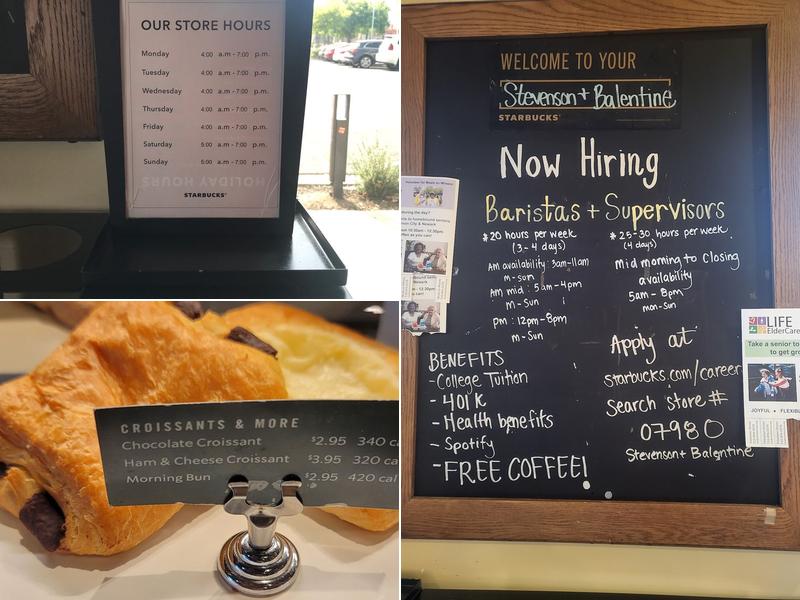 OUR STORE HOURS
Monday 4:00 a.m - 7:00 p.m.
Tuesday 4:00 a.m - 7:00 p.m.
Wednesday 4:00 a.m - 7:00 p.m.
Thursday 4:00 a.m - 7:00 p.m.
Friday 4:00 a.m - 7:00 p.m.
Saturday 5:00 a.m - 7:00 p.m.
Sunday 5:00 a.m - 7:00 p.m.
HOLIDAY HOURS
STARBUCKS
CROISSANTS & MORE
Chocolate Croissant $2.95 340 ca
Ham & Cheese Croissant $3.95 320 ca
Morning Bun $2.95 420 cal
WELCOME TO YOUR
Stevenson + Balentine
STARBUCKS
Now Hiring
Baristas + Supervisors
*20 hours per week
(3-4 days)
AM availability: 3am-11am
m-sun
AM mid: 5am-4pm
m-Sun
pm: 12pm-8pm
m-Sun
*25-30 hours per week
(4 days)
Mid morning to Closing
availability
5am - 8pm
mon-Sun
BENEFITS
-College Tuition
- 401K
- Health benefits
- Spotify
-FREE COFFEE!
Apply at
starbucks.com/career
Search store #
07980
Stevenson + Balentine
LIFE
ElderCare
Take a senior to
to get gro
JOYFUL • FLEXIB